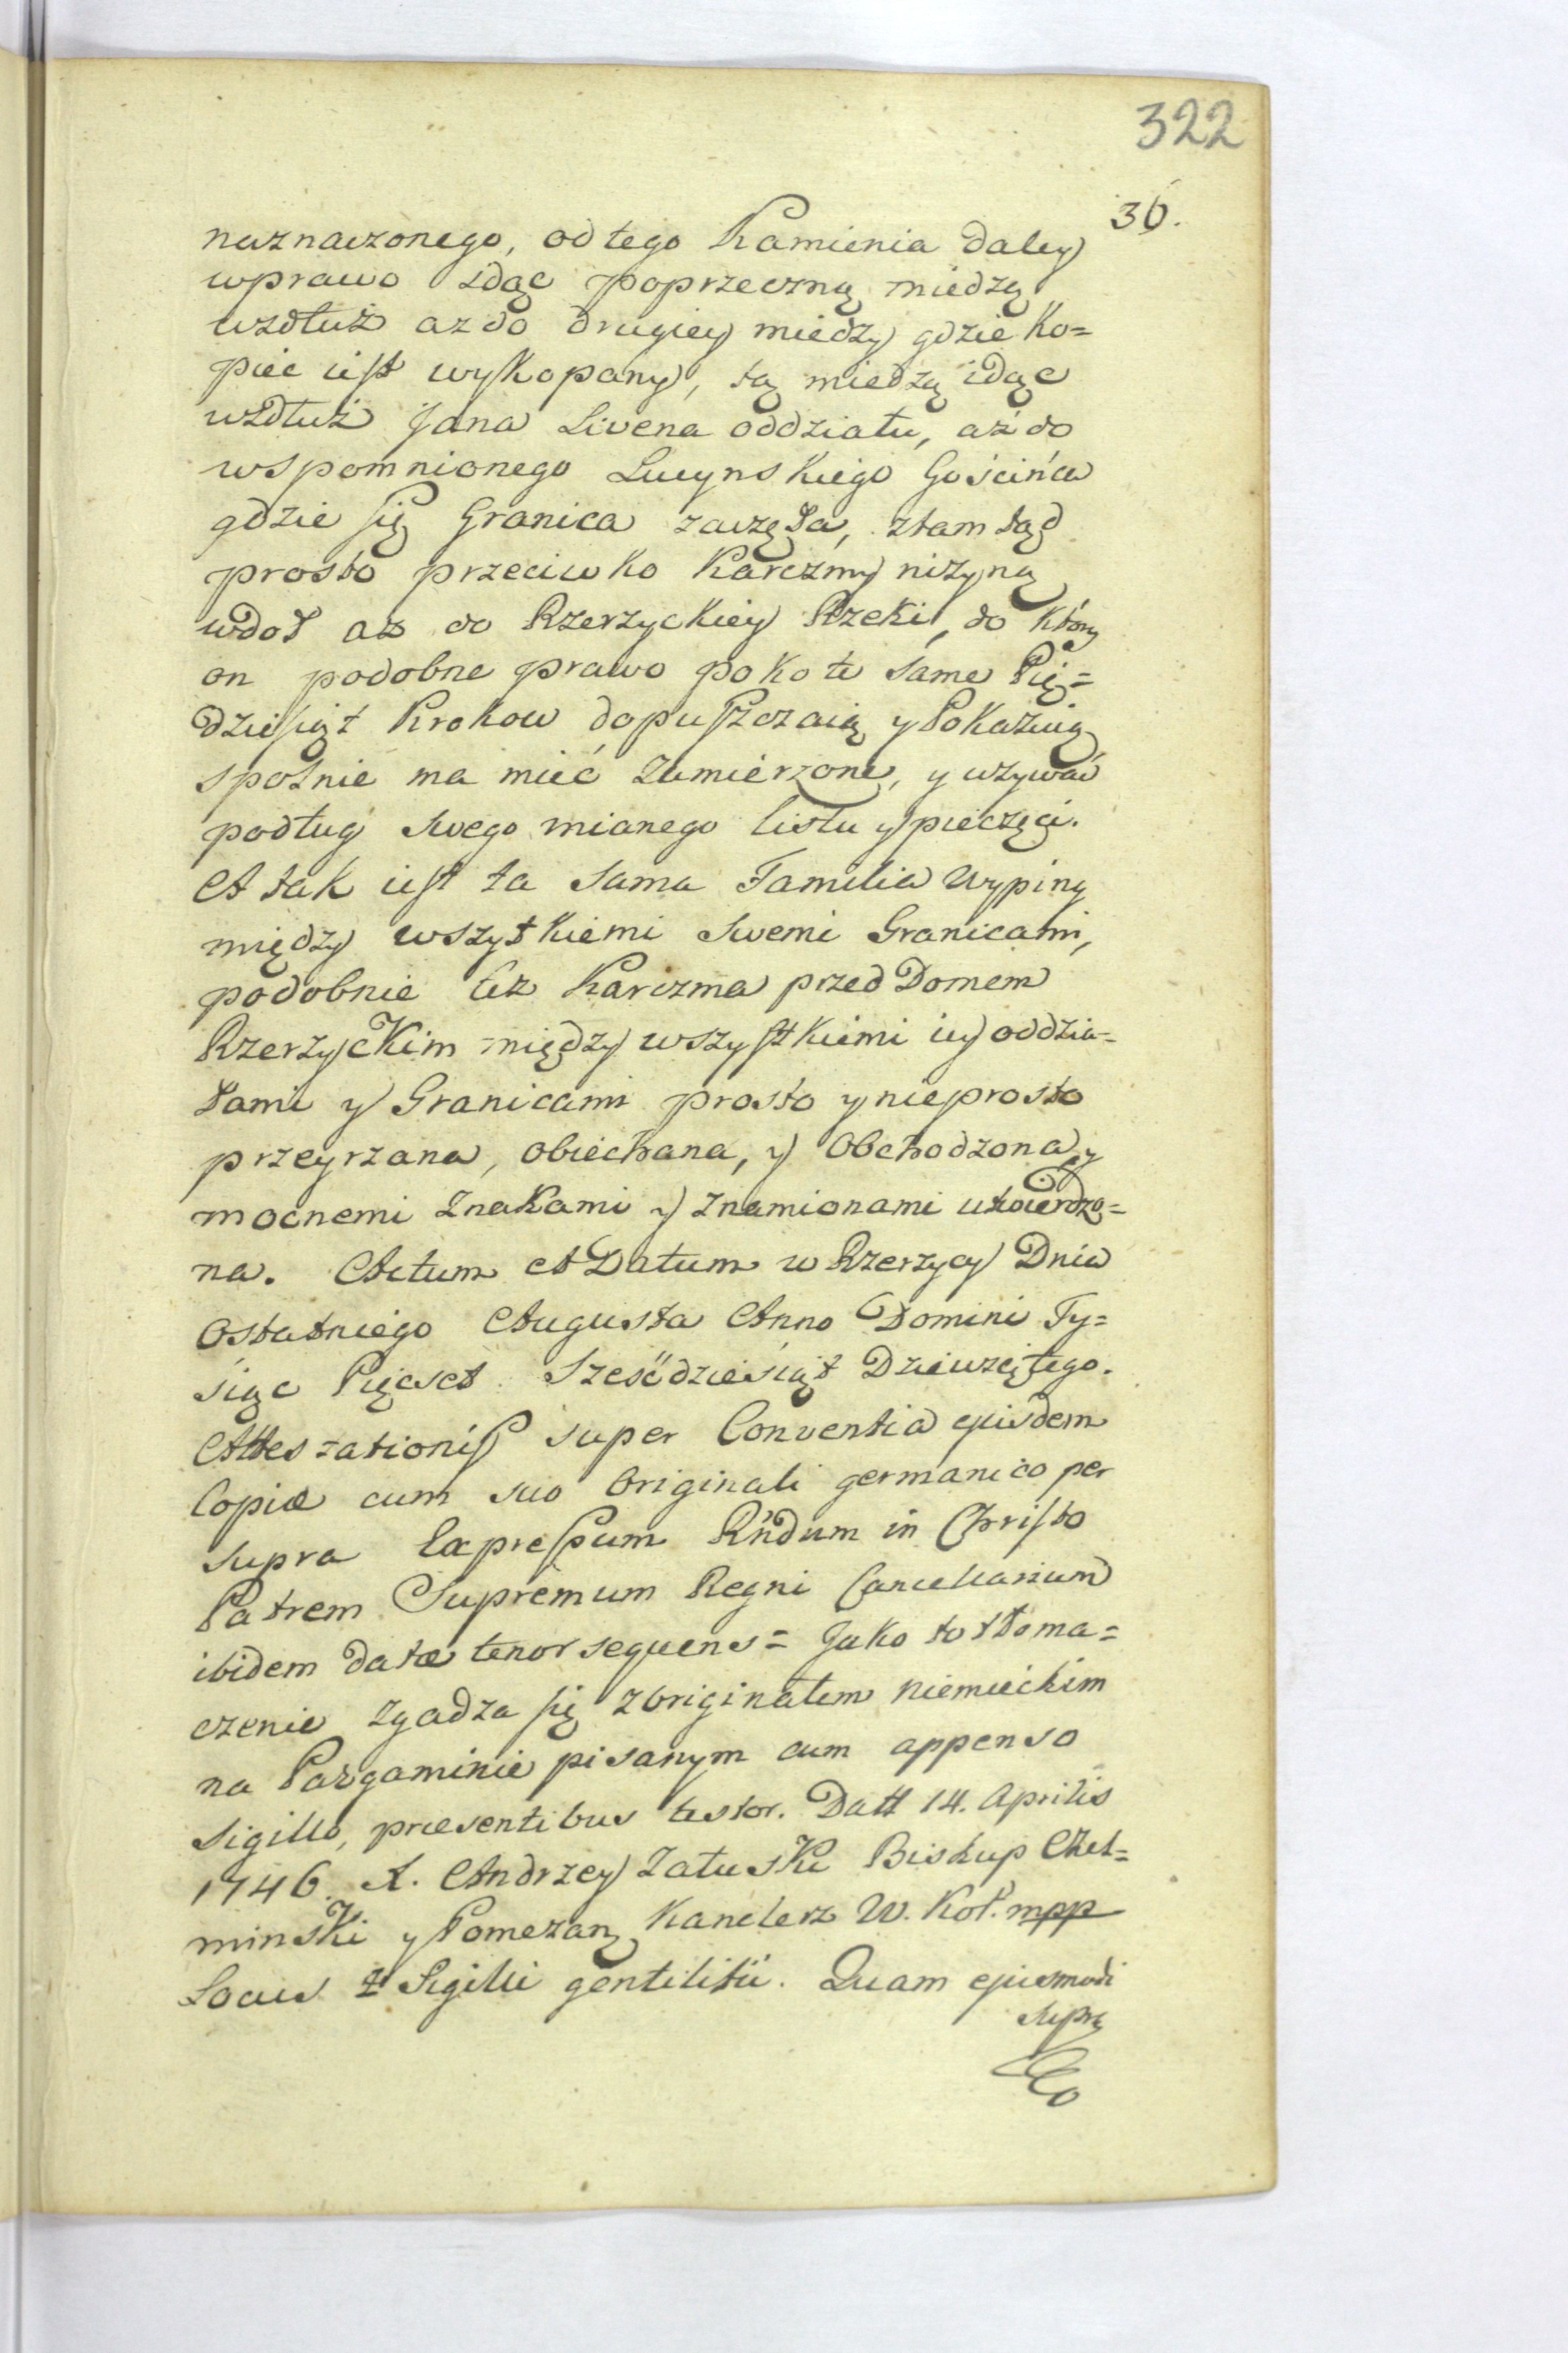 322
36.
naznaczonego, od tego Kamienia daley
wprawo idąc poprzeczną miedzą
wzdłuż az do drugiey miedzy gdzie Ko=
piec iest wykopany, tą miedzą idąc
wzdłuż Jana Livena oddziału, aż do
wspomnionego Lucynskiego Gościńca
gdzie się Granica zaczęła, ztamtąd
prosto przeciwko Karczmy niżyną
wdoł az do Rzerzyckiey Rzeki, do ktory
on podobne prawo poko te same Pię=
dziesiąt Krokow dopuszczaią y Pokażuią
spolnie ma mieć zamierzone, y używać
podług swego mianego listu y pieczęci.
A tak iest ta sama Familia Wypiny
między wszytkiemi swemi Granicami,
podobnie tez Karczma przed Domem
Rzerzyckim między wszystkiemi iey oddzia=
łami y Granicami prosto y nieprosto
przeyrzana, obiechana, y Obchodzona, y
mocnemi znakami y znamionami utwierdzo=
na. Actum et Datum w Rzerzycy Dnia
Ostatniego Augusta Anno Domini Ty=
siąc Pięcset Sześćdziesiąt Dziewiątego.
Attestationis super Conventia ejusdem
Copiæ cum suo Originali germanico per
supra Expressum Rndum in Christo
Patrem Supremum Regni Cancellarium
ibidem datæ tenor sequens = Jako to tłoma=
czenie zgadza się z Originałem niemieckim
na Pargaminie pisanym cum appenso
sigillo, præsentibus testor. Datt 14. Aprilis
1746. X. Andrzey Załuski Biskup Cheł=
minski y Pomezan, Kanclerz W. Kor. mpp
Locus Sigilli gentilitii. Quam ejusmodi
supra